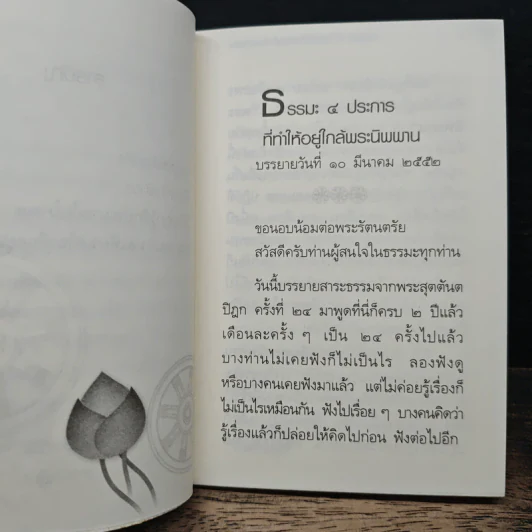 ธรรมะ ๔ ประการ
ที่ทำให้อยู่ใกล้พระนิพพาน
บรรยายวันที่ ๑๐ มีนาคม ๒๕๕๒
ขอนอบน้อมต่อพระรัตนตรัย
สวัสดีครับท่านผู้สนใจในธรรมะทุกท่าน
วันนี้บรรยายสาระธรรมจากพระสุตตันต
ปิฎก ครั้งที่ ๒๔ มาพูดที่นี่ก็ครบ ๒ ปีแล้ว
เดือนละครั้ง ๆ เป็น ๒๔ ครั้งไปแล้ว
บางท่านไม่เคยฟังก็ไม่เป็นไร ลองฟังดู
หรือบางคนเคยฟังมาแล้ว แต่ไม่ค่อยรู้เรื่องก็
ไม่เป็นไรเหมือนกัน ฟังไปเรื่อย ๆ บางคนคิดว่า
รู้เรื่องแล้วก็ปล่อยให้คิดไปก่อน ฟังต่อไปอีก